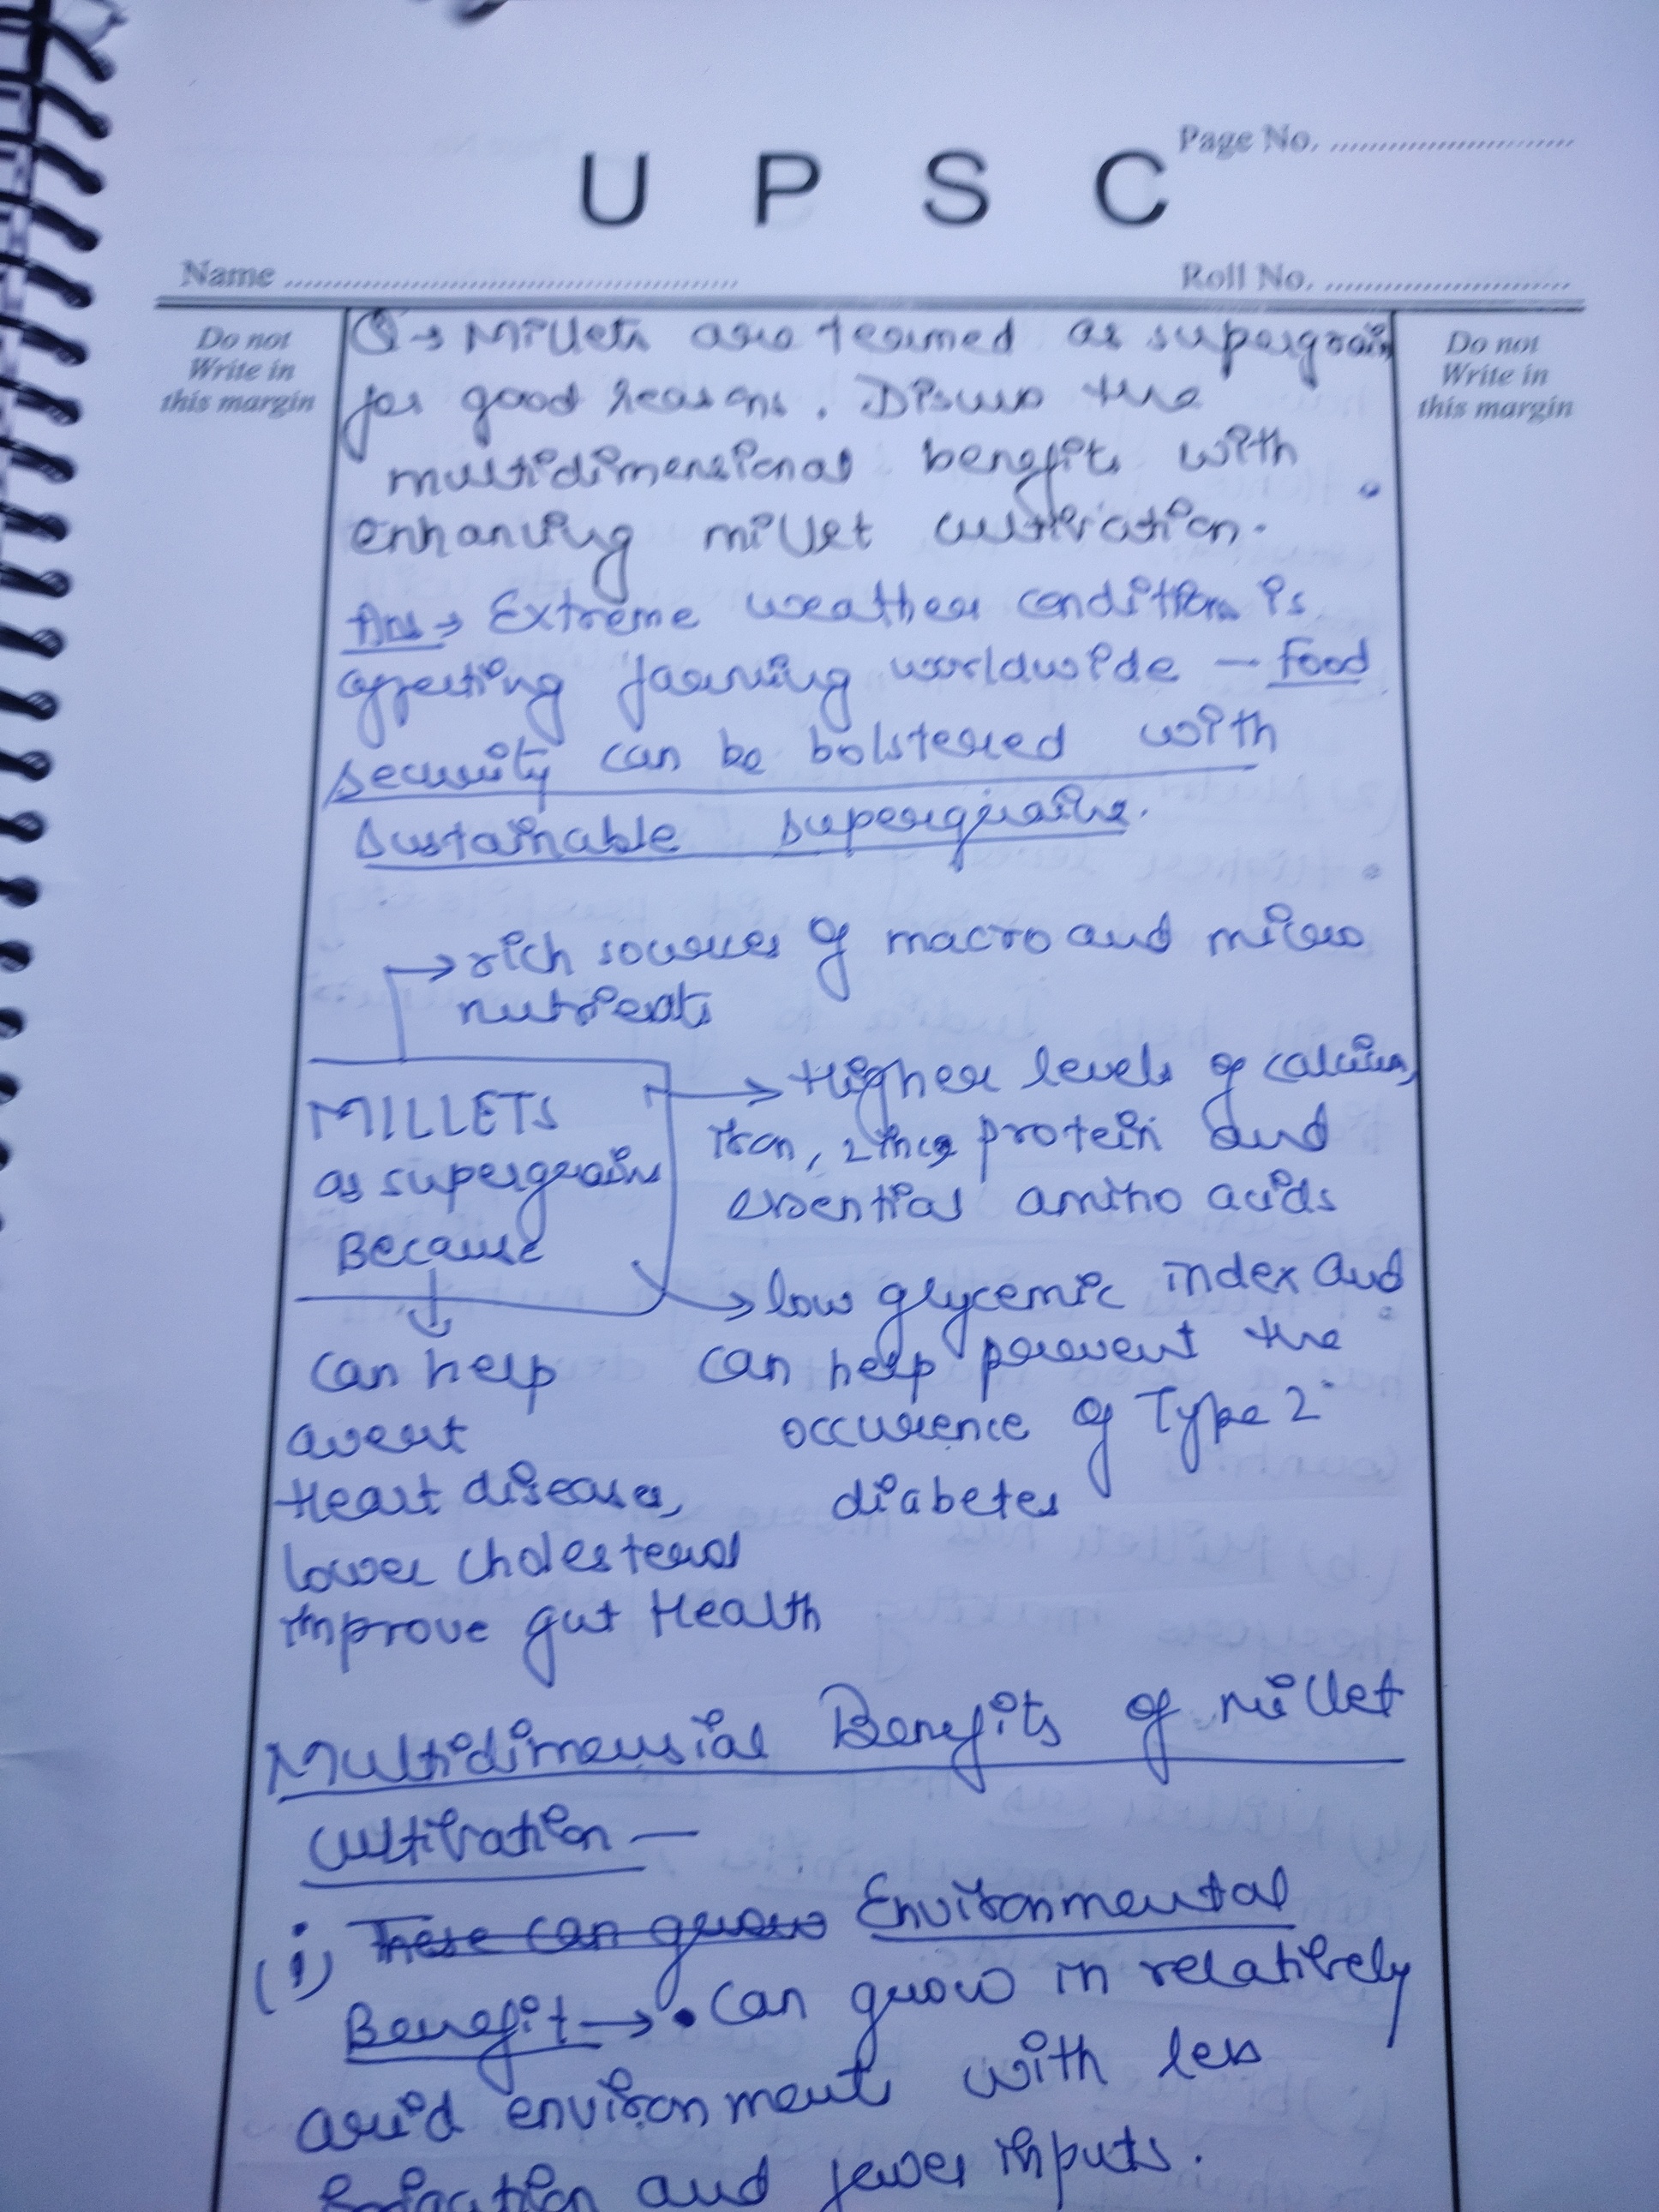 Page No.
U P S C
Name
Roll No.
Do not
Write in
this margin
Do not
Write in
this margin
Q→ Millets are termed as supergrain
for good reasons. Discuss the
multidimensional benefits with
enhancing millet cultivation.
Ans→ Extreme weather condition is
affecting farming worldwide — Food
security can be bolstered with
sustainable supergrains.
→ rich sources of macro and micro
nutrients
MILLETS
as supergrains
Because
→ Higher levels of calcium,
iron, zinc, protein and
essential amino acids
→ low glycemic index and
can help prevent the
occurence of Type 2
diabetes
can help
avert
Heart diseases,
lower cholesterol
improve gut Health
Multidimensial Benefits of millet
cultivation —
(i) These can grow Environmental
Benefit → • Can grow in relatively
arid environments with less
irrigation and fewer inputs.